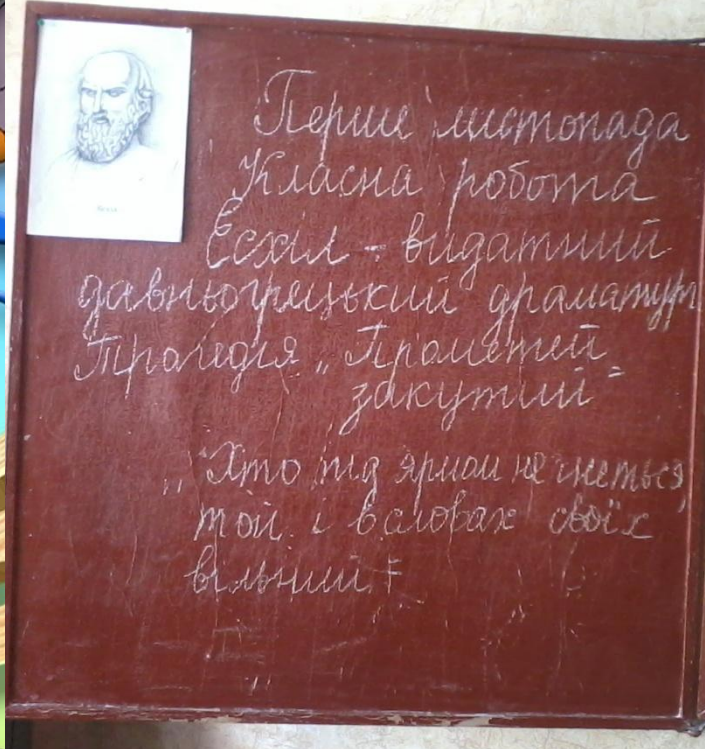 Перше листопада
Класна робота
Есхіл - видатний
давньогрецький драматург
Трагедія „Прометей
закутий"
„Хто під ярмом не гнеться,
той і в словах своїх
вільний."